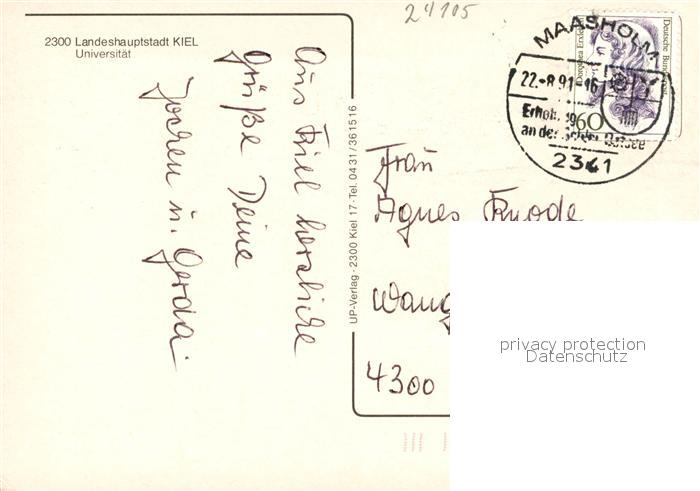 2300 Landeshauptstadt KIEL
Universität
Aus Kiel herzliche
Grüße Deine
Jochen u. Gerda.
UP-Verlag · 2300 Kiel 17 · Tel. 0431/361516
24105
MAASHOLM
22.-8.91-16
an der
2341
Deutsche Bundespost
Dorothea Erxleben
60
Frau
Agnes Knode
4300
privacy protection
Datenschutz